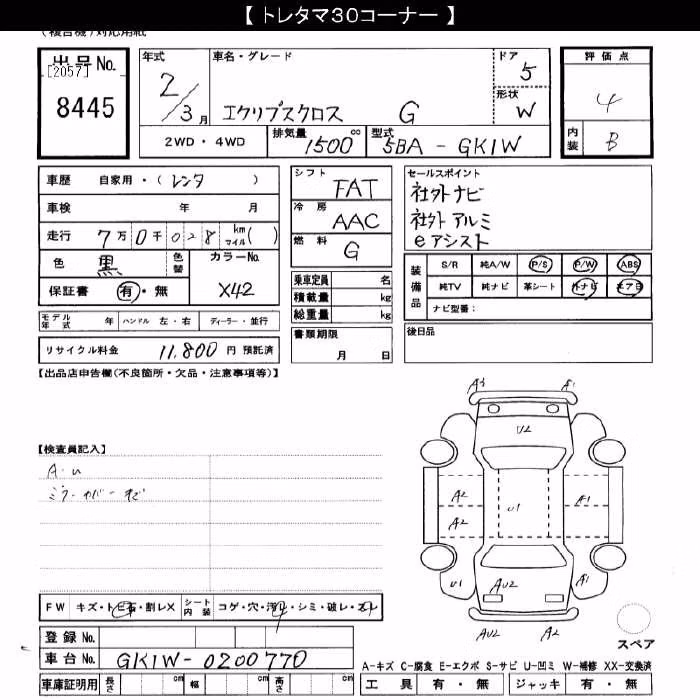 【 トレタマ30コーナー 】
(複合機)対応用紙
出品No. 年式 車名・グレード ドア 5 評価点
[2057] 2/3月 エクリプスクロス G 形状 W 4
8445 2WD・4WD 排気量 1500cc 型式 5BA-GK1W 内装 B
車歴 自家用・(レンタ ) シフト FAT セールスポイント
車検 年 月 冷房 AAC 社外ナビ
走行 7万0千028 kmマイル( ) 燃料 G 社外アルミ
eアシスト
色 黒 色替 カラーNo. X42 乗車定員 名 装備品 S/R 純A/W P/S P/W ABS
保証書 有・無 積載量 kg 純TV 純ナビ 革シート 外ナビ エアB
総重量 kg ナビ型番:
モデル年式 年 ハンドル 左・右 ディーラー・並行 書類期限 月 日 後日品
リサイクル料金 11,800 円 預託済
【出品店申告欄(不良箇所・欠品・注意事項等)】
【検査員記入】
A・U
ミラーカバーキズ
A3 A1
U2
A2 U1 A1
A2
U1 AU2 A1
AU2 A2
FW キズ・トビ石・割レX シート内装 コゲ・穴・汚レ・シミ・破レ・スレ
スペア
登録No.
車台No. GK1W-0200770
A-キズ C-腐食 E-エクボ S-サビ U-凹ミ W-補修 XX-交換済
車庫証明用 長さ cm 幅 cm 高さ cm 工具 有・無 ジャッキ 有・無